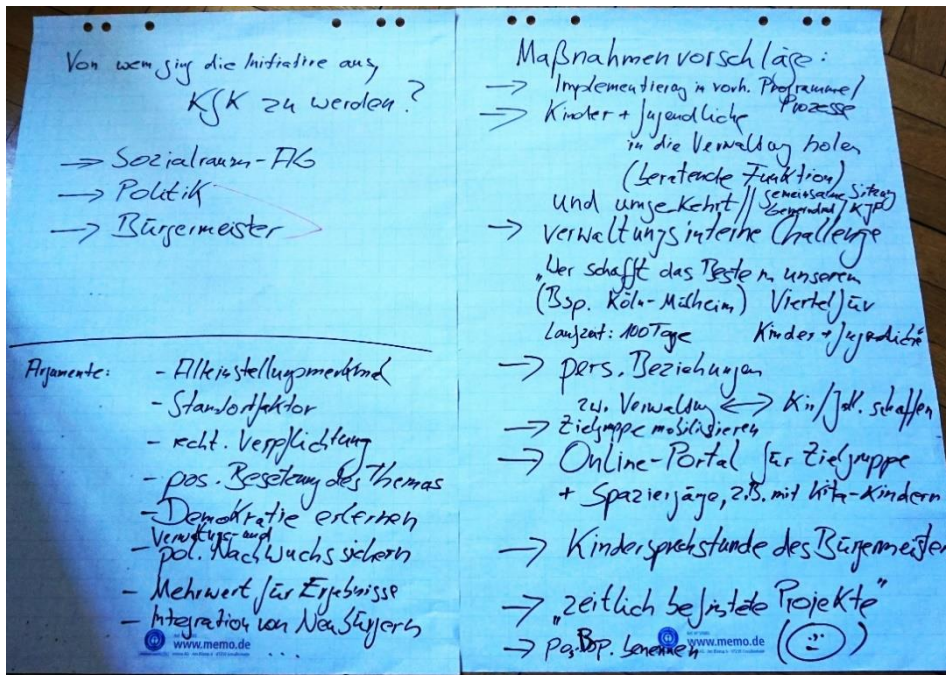 Von wem ging die Initiative aus,
KfK zu werden?
→ Sozialraum-AG
→ Politik
→ Bürgermeister
Argumente:
- Alleinstellungsmerkmal
- Standortfaktor
- recht. Verpflichtung
- pos. Besetzung des Themas
- Demokratie erlernen
Verwaltungs- und
- pol. Nachwuchs sichern
- Mehrwert für Ergebnisse
- Integration von Neubürgern
www.memo.de
...
Maßnahmenvorschläge:
→ Implementierung in vorh. Programme/
Prozesse
→ Kinder + Jugendliche
in die Verwaltung holen
(beratende Funktion)
und umgekehrt // gemeinsame Sitzung
Gemeinderat / KJP
→ verwaltungsinterne Challenge
„Wer schafft das Beste in unserem
(Bsp. Köln-Mülheim) Viertel für
Laufzeit: 100 Tage Kinder + Jugendliche"
→ pers. Beziehungen
zw. Verwaltung ↔ Ki/Jgdl. schaffen
→ Zielgruppe mobilisieren
→ Online-Portal für Zielgruppe
+ Spaziergänge, z.B. mit Kita-Kindern
→ Kindersprechstunde des Bürgermeister
→ „zeitlich befristete Projekte"
→ pos. Bsp. benennen
www.memo.de